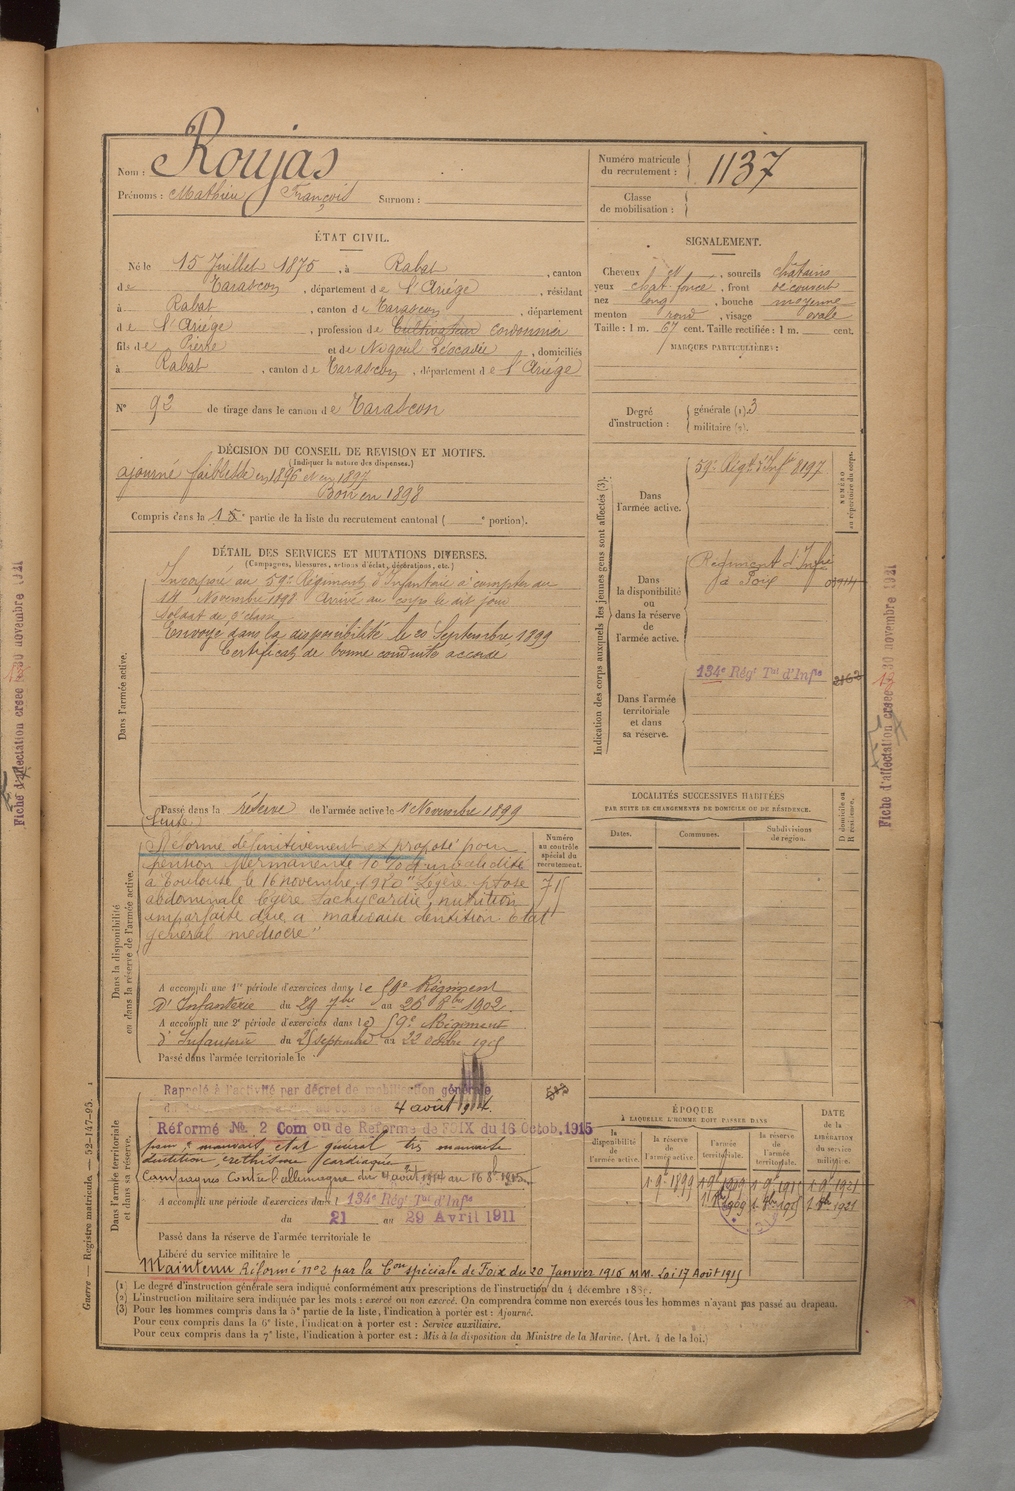 Nom : Roujas
Prénoms : Mathieu François Surnom :
Numéro matricule du recrutement : 1137
Classe de mobilisation :
ÉTAT CIVIL.
Né le 15 Juillet 1875, à Rabat, canton
de Tarascon, département de l'Ariége, résidant
à Rabat, canton de Tarascon, département
de l'Ariége, profession de Cultivateur cordonnier
fils de Pierre et de Nigoul Léocadie, domiciliés
à Rabat, canton de Tarascon, département de l'Ariége
N° 92 de tirage dans le canton de Tarascon
SIGNALEMENT.
Cheveux, sourcils châtains
yeux chat foncé, front découvert
nez long, bouche moyenne
menton rond, visage ovale
Taille : 1 m. 67 cent. Taille rectifiée : 1 m. cent.
MARQUES PARTICULIÈRES :
Degré d'instruction : générale (1) 3
militaire (2).
DÉCISION DU CONSEIL DE REVISION ET MOTIFS.
(Indiquer la nature des dispenses.)
ajourné faiblesse en 1896 et en 1897
Bon en 1898
Compris dans la partie de la liste du recrutement cantonal ( e portion).
DÉTAIL DES SERVICES ET MUTATIONS DIVERSES.
(Campagnes, blessures, actions d'éclat, décorations, etc.)
Dans l'armée active.
Incorporé au 59e Régiment d'Infanterie à compter du
14 Novembre 1898 Arrivé au corps le dit jour
Soldat de 2e classe
Envoyé dans la disponibilité le 20 Septembre 1899
Certificat de bonne conduite accordé
Passé dans la réserve de l'armée active le 1er Novembre 1899
Indication des corps auxquels les jeunes gens sont affectés (3).
NUMÉRO au répertoire du corps.
Dans l'armée active.
59e Régt d'Infie 8197
Dans la disponibilité ou dans la réserve de l'armée active.
Régiment d'Infie
à Foix
Dans l'armée territoriale et dans sa réserve.
134e Régt Tal d'Infie 2162
LOCALITÉS SUCCESSIVES HABITÉES
PAR SUITE DE CHANGEMENTS DE DOMICILE OU DE RÉSIDENCE.
Dates. Communes. Subdivisions de région. D domicile ou R résidence.
Dans la disponibilité ou dans la réserve de l'armée active.
Numéro au contrôle spécial du recrutement.
715
(Suite)
Réformé définitivement et proposé pour
pension permanente 10% d'invalidité
à Toulouse le 16 novembre 1920 "Légère ptose
abdominale légère tachycardie, nutrition
imparfaite due à mauvaise dentition état
général médiocre"
A accompli une 1re période d'exercices dans le 59e Régiment
D'Infanterie du 29 7bre au 26 8bre 1902.
A accompli une 2e période d'exercices dans le 59e Régiment
d'Infanterie du 25 septembre au 22 octobre 1905
Passé dans l'armée territoriale le
Dans l'armée territoriale et dans sa réserve.
Rappelé à l'activité par décret de mobilisation générale
4 août 1914.
Réformé No. 2 Comon de Réforme de FOIX du 16 Octob. 1915
pour : mauvais état général très mauvaise
dentition, eréthisme cardiaque
Campagnes Contre l'allemagne du 4 août 1914 au 16 8bre 1915
A accompli une période d'exercices dans l 134e Régt Tal d'Infie
du 21 au 29 Avril 1911
Passé dans la réserve de l'armée territoriale le
Libéré du service militaire le
Maintenu Réformé no 2 par la Con spéciale de Foix du 20 Janvier 1916 MM. Loi 17 Août 1915
ÉPOQUE
À LAQUELLE L'HOMME DOIT PASSER DANS
DATE DE LA LIBÉRATION du service militaire.
la disponibilité de l'armée active. la réserve de l'armée active. l'armée territoriale. la réserve de l'armée territoriale.
1 9e 1899 1 9e 1909 1 9e 1915 1 9e 1921
(1) Le degré d'instruction générale sera indiqué conformément aux prescriptions de l'instruction du 4 décembre 1889.
(2) L'instruction militaire sera indiquée par les mots : exercé ou non exercé. On comprendra comme non exercés tous les hommes n'ayant pas passé au drapeau.
(3) Pour les hommes compris dans la 5e partie de la liste, l'indication à porter est : Ajourné.
Pour ceux compris dans la 6e liste, l'indication à porter est : Service auxiliaire.
Pour ceux compris dans la 7e liste, l'indication à porter est : Mis à la disposition du Ministre de la Marine. (Art. 4 de la loi.)
Guerre — Registre matricule. — 52-147-95.
Fiche d'affectation créée le 30 novembre 1921
Fiche d'affectation créée le 30 novembre 1921